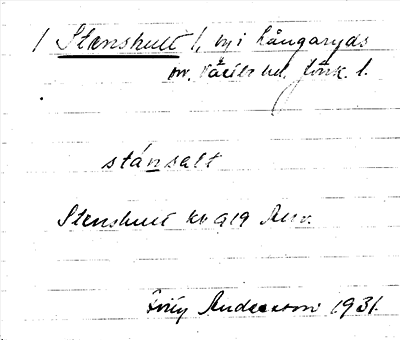 / Stenshult /, by i Långaryds
sn. Västbo hd. Jönk. l.
stánsalt
Stenshult kv 919 Ant.
Anderson 1931.